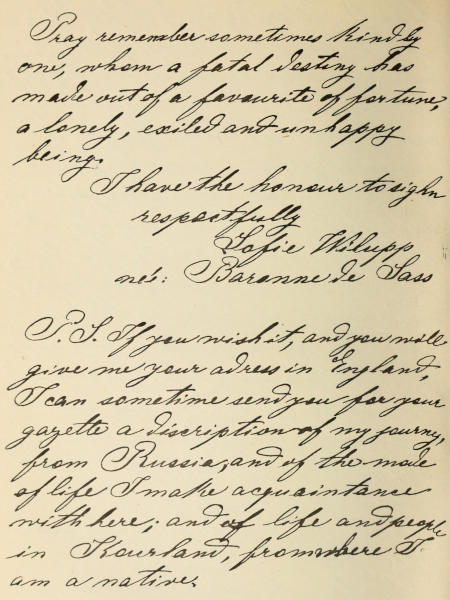 Pray remember sometimes kindly
one, whom a fatal destiny has
made out of a favourite of fortune,
a lonely, exiled and unhappy
being.
I have the honour to sighn
respectfully
Sofie Wilupp
neé: Baronne de Sass
P.S. If you wish it, and you will
give me your adress in England,
I can sometime send you for your
gazette a discription of my journey,
from Russia, and of the mode
of life I make acquaintance
with here; and of life and people
in Kourland, from where I
am a native.